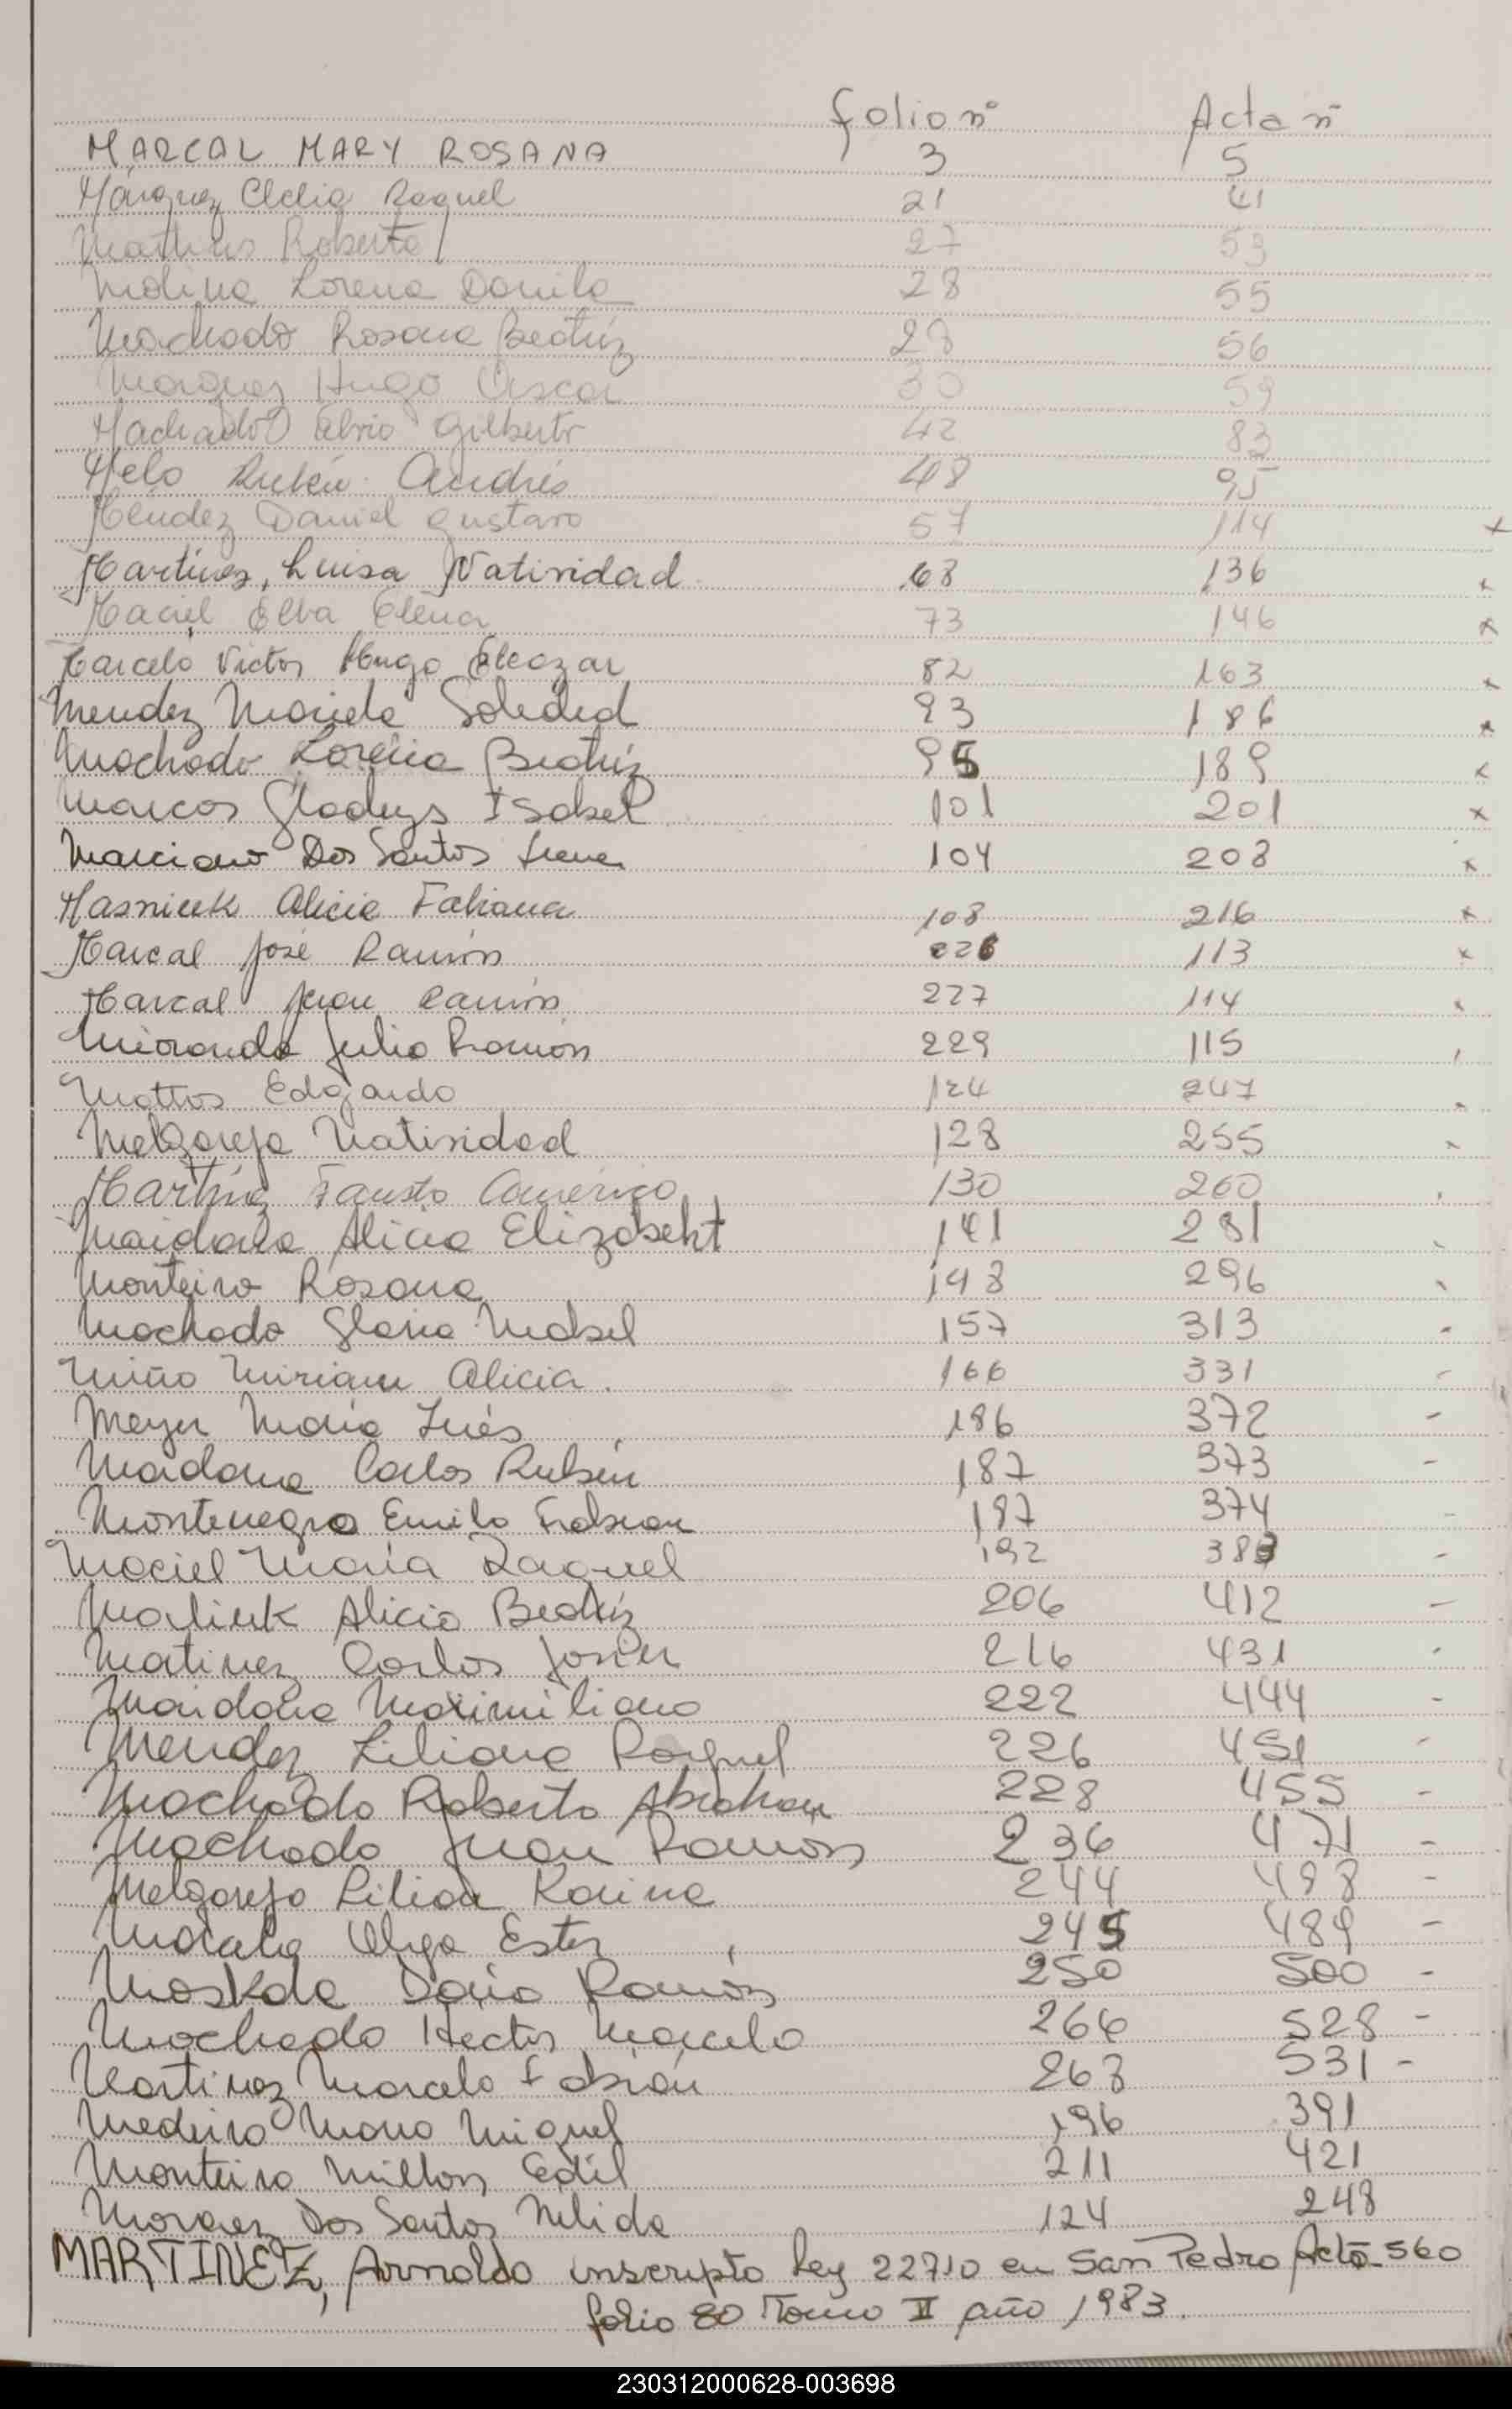 folio nº Acta nº
MARCAL MARY ROSANA 3 5
Márquez Clelia Raquel 21 41
Mathius Roberto 27 53
Molina Lorena Danila 28 55
Machado Rosana Beatriz 28 56
Marquez Hugo Oscar 30 59
Machado Gilberto 42 83
Melo Rubén Andrés 48 95
Méndez Daniel Gustavo 57 114 x
Martínez, Luisa Natividad 68 136 x
Maciel Elba Elena 73 146 x
Marcelo Victor Hugo Eleazar 82 163 x
Mendez Mariela Soledad 93 186 x
Machado Lorena Beatriz 95 189 x
Marcos Gladys Isabel 101 201 x
Marciano Dos Santos Irene 104 208 x
Masniuk Alicia Fabiana 108 216 x
Marcal José Ramón 226 113 x
Marcal Juan Ramón 227 114 x
Miranda Julio Ramón 229 115
Mattos Edgardo 124 247
Melgarejo Natividad 128 255
Martínez Fausto Américo 130 260
Maidana Alicia Elizabeht 141 281
Monteiro Rosana 148 296
Machado Gloria Mabel 157 313 -
Miño Miriam Alicia. 166 331 -
Meyer María Inés 186 372 -
Maidana Carlos Rubén 187 373 -
Montenegro Emilo Fabian 187 374 -
Maciel María Raquel 192 383 -
Marliuk Alicia Beatriz 206 412 -
Matinez Carlos Javier 216 431 -
Maidana Maximiliano 222 444 -
Mendez Liliana Raquel 226 451 -
Machado Roberto Abraham 228 455 -
Machado Juan Ramón 236 471 -
Melgarejo Lilian Karina 244 488 -
Olga Ester 245 489 -
Moskda Dario Ramón 250 500 -
Machado Hector Marcelo 264 528 -
Martinez Marcelo Fabián 268 531 -
Medeiro Mario Miguel 196 391
Monteiro Milton Edil 211 421
Moraez Dos Santos Nelida 124 248
MARTINEZ, Arnoldo inscripto Ley 22710 en San Pedro Acta 560
folio 80 Tomo II año 1983.
230312000628-003698